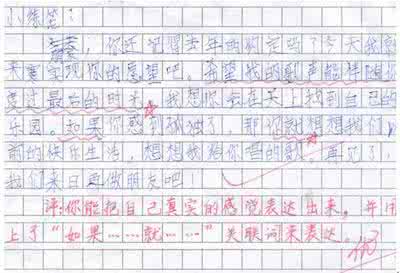 小练笔:
，你还记得去年的约定吗?今天我就
来实现你的愿望吧。希望我的歌声能伴随你
度过最后的时光。我想你会在天上找到自己的
乐园。如果你感到孤独了，那你就想想我们
前的快乐生活，想想我给你唱的歌。再见了，
我们来日再做朋友吧!
评:你能把自己真实的感觉表达出来，并用
上了“如果……就……”关联词来表达。优